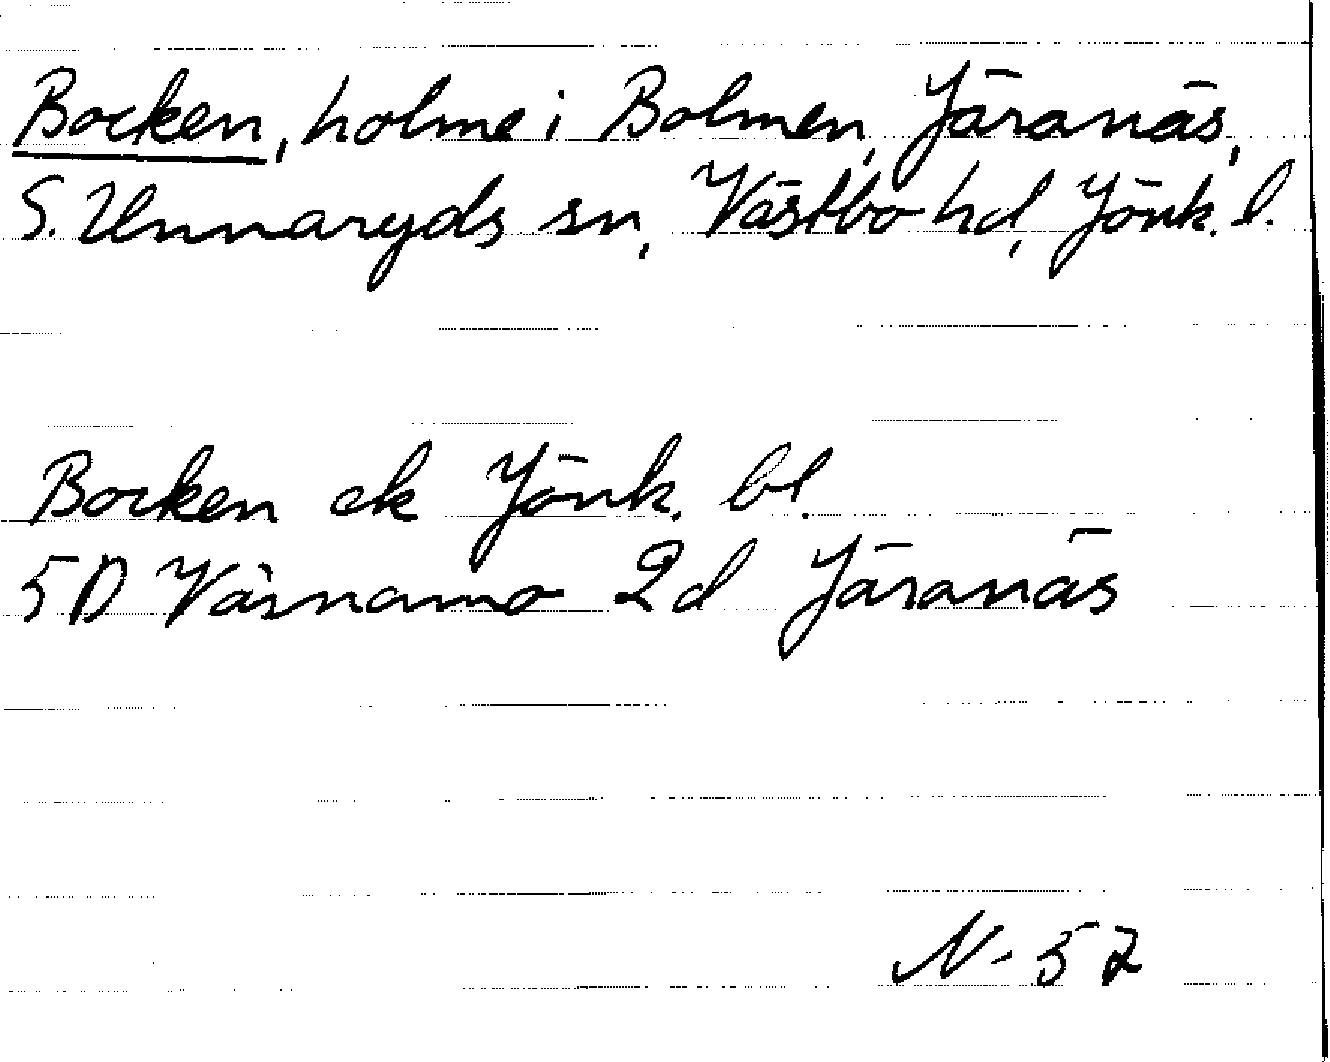 Bocken, holme i Bolmen, Järanäs,
S. Unnaryds sn, Västbo hd, Jönk. l.
Bocken ek Jönk. bl.
5D Värnamo 2d Järanäs
N-52